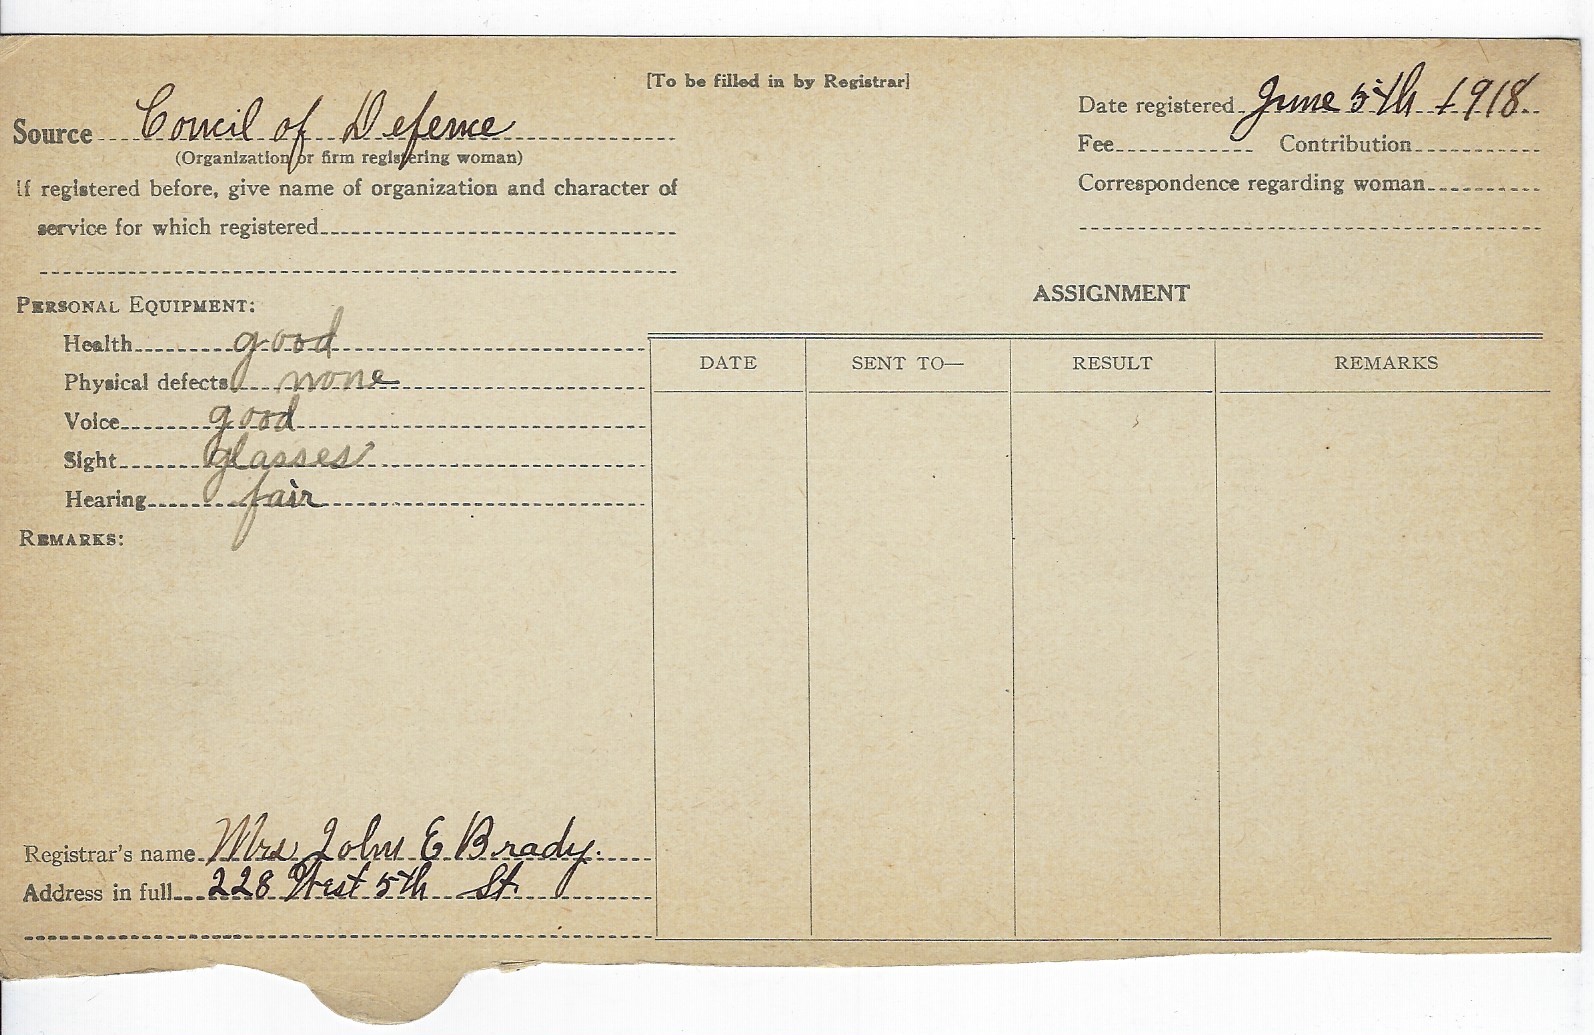 [To be filled in by Registrar]
Source Concil of Defence
(Organization or firm registering woman)
If registered before, give name of organization and character of
service for which registered
Date registered June 5th 1918
Fee Contribution
Correspondence regarding woman
PERSONAL EQUIPMENT:
Health good
Physical defects none
Voice good
Sight glasses
Hearing fair
REMARKS:
ASSIGNMENT
DATE SENT TO— RESULT REMARKS
Registrar's name Mrs John E Brady.
Address in full 228 West 5th St.